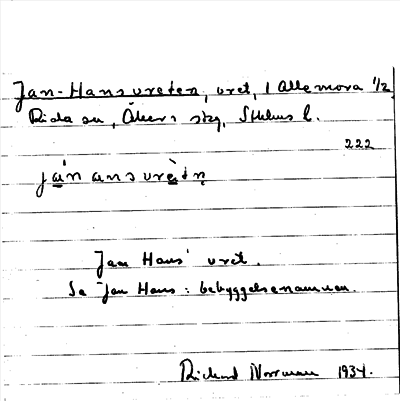 Jan-Hansvreten, vret, 1 Allemora 1/2,
Rida sn, Åkers skg, Sthlms l.
222
ján ansvrètn̥
Jan Hans' vret.
Se Jan Hans: bebyggelsenamnen.
Rickard Norrman 1934.